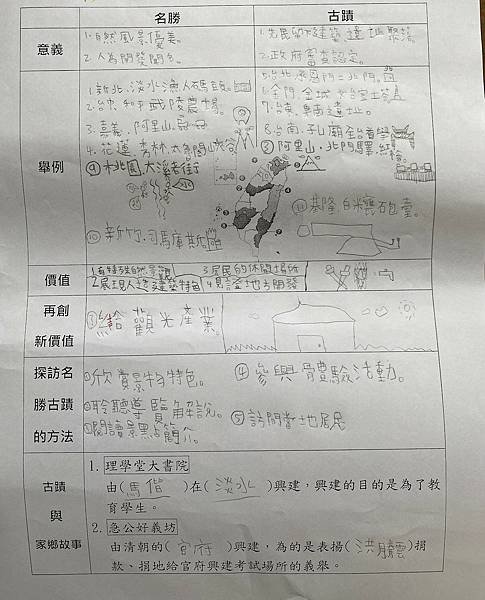 名勝
古蹟
意義
1.自然風景優美。
2.人為開發聞名。
1.先民的建築、遺址、聚落。
2.政府審查認定。
舉例
1.新北、淡水漁人碼頭。
2.台中、和平武陵農場。
3.嘉義、阿里山
4.花蓮、秀林、太魯閣峽谷
⑨桃園、大溪老街
⑩新竹、司馬庫斯
5.台北、承恩門=北門。
6.金門、金城
7.台東、卑南遺址。
8.台南、孔廟全台首學
⑧阿里山、北門驛
⑪基隆、白米甕砲臺。
價值
1.有特殊自然景觀
2.展現人造建築特色
3.居民的休閒場所
4.見證地方開發
再創
新價值
①結合觀光產業。
探訪名
勝古蹟
的方法
①欣賞景物特色。
②聆聽導覽解說。
③閱讀景點簡介。
④參與體驗活動。
⑤訪問當地居民
古蹟
與
家鄉故事
1. 理學堂大書院
由(馬偕)在(淡水)興建，興建的目的是為了教
育學生。
2. 急公好義坊
由清朝的(官府)興建，為的是表揚(洪騰雲)捐
款、捐地給官府興建考試場所的義舉。